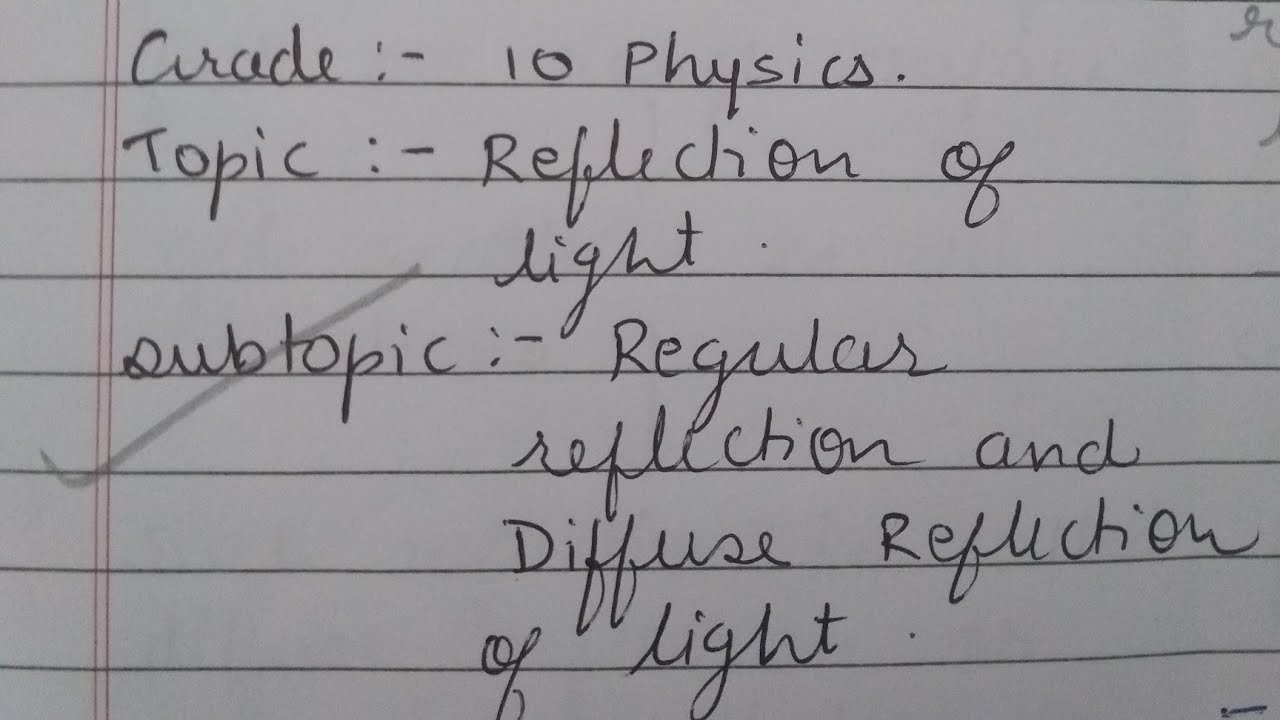 Grade :- 10 Physics.
Topic :- Reflection of
light.
subtopic :- Regular
reflection and
Diffuse Reflection
of light.